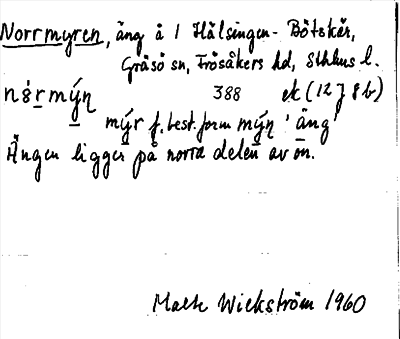 Norrmyren, äng å 1 Hälsingen - Båtskär,
Gräsö sn, Frösåkers hd, Sthlms l.
nȯrmýn 388 ek (12 J 8 b)
mýr f. best. form mýn 'äng'
Ängen ligger på norra delen av ön.
Malte Wickström 1960